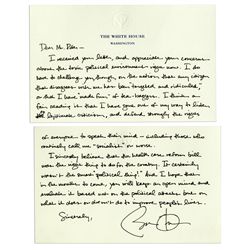 THE WHITE HOUSE
WASHINGTON
Dear Mr.
I received your letter, and appreciate your concerns
about the toxic political environment right now. I do
have to challenge you, though, on the notion that any citizen
that disagrees with me has been "targeted and ridiculed," or
that I have "made fun" of tea-baggers. I think a
fair reading is that I have gone out of my way to listen to
legitimate criticism, and defend strongly the right
of everyone to speak their mind — including those who
routinely call me "socialist" or worse.
I sincerely believe that the health care reform bill
was the right thing to do for the country. It certainly
wasn't the smart "political thing!" And I hope that
in the months to come, you will keep an open mind and
evaluate it based not on the political attacks but on
what it does or doesn't do to improve people's lives.
Sincerely,